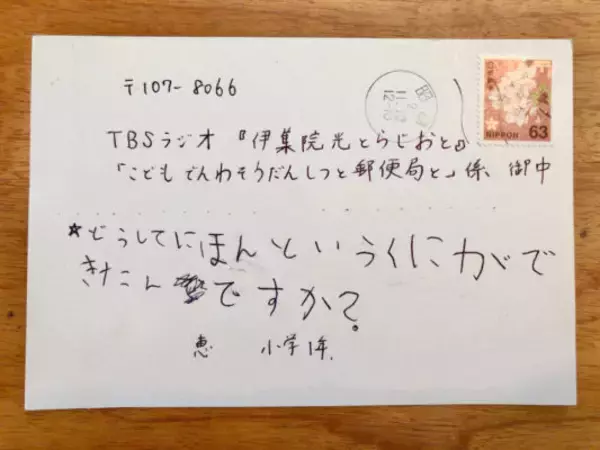 〒107-8066
TBSラジオ『伊集院光とらじおと』
「こどもでんわそうだんしつと郵便局と」係 御中
*どうしてにほんというくにがで
きたこんですか?
恵 小学1年.
NIPPON 63